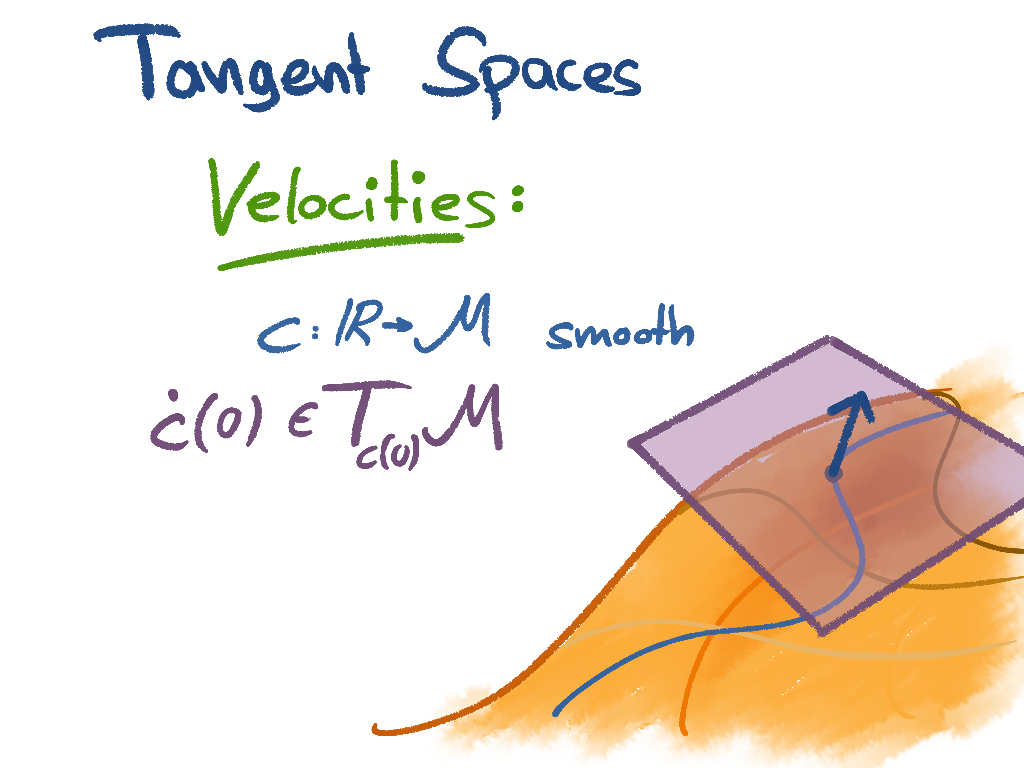 Tangent Spaces
Velocities:
c: ℝ → ℳ smooth
ċ(0) ∈ T_{c(0)}ℳ